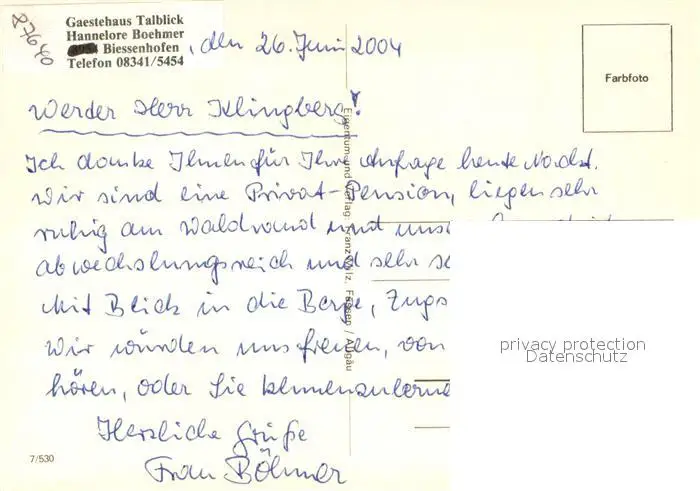 87640
Gaestehaus Talblick
Hannelore Boehmer
Biessenhofen
Telefon 08341/5454
, den 26. Juni 2004
Farbfoto
Werder Herr Klingberg!
Ich danke Ihnen für Ihre Anfrage heute Nacht.
Wir sind eine Privat-Pension, liegen sehr
ruhig am Waldrand und
abwechslungsreich und sehr
Mit Blick in die Berge, Zugs
Wir würden uns freuen, von
hören, oder Sie kennenzulerne
Herzliche Grüße
Frau Böhmer
7/530
Eigentum und Verlag: Franz Milz, Füssen / Allgäu
privacy protection
Datenschutz